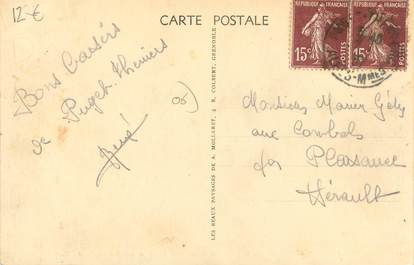 12 €
CARTE POSTALE
RÉPUBLIQUE FRANÇAISE
RÉPUBLIQUE FRANÇAISE
15c POSTES
15c POSTES
S-MMES
Bons
de Puget-Théniers
06
LES BEAUX PAYSAGES DE A. MOLLARET, 4 R. COLBERT, GRENOBLE
Monsieur
aux Combals
par Plaisance
Hérault